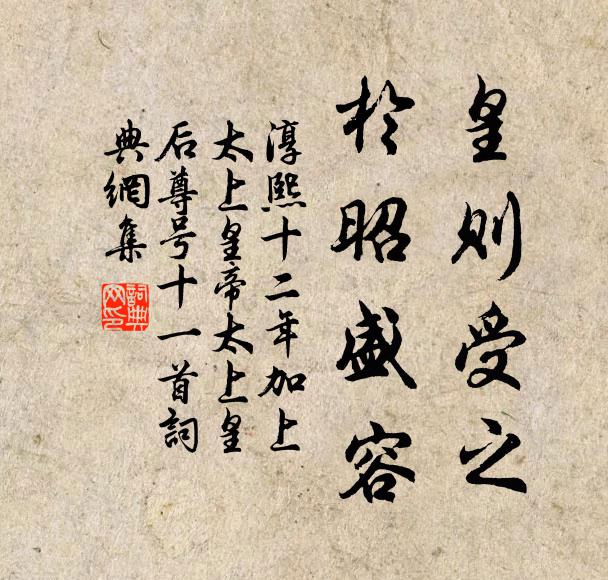 皇則受之
於昭盛容
淳熙十二年加上
太上皇帝太上皇
后尊号十一首詞
典網集
詞典网印